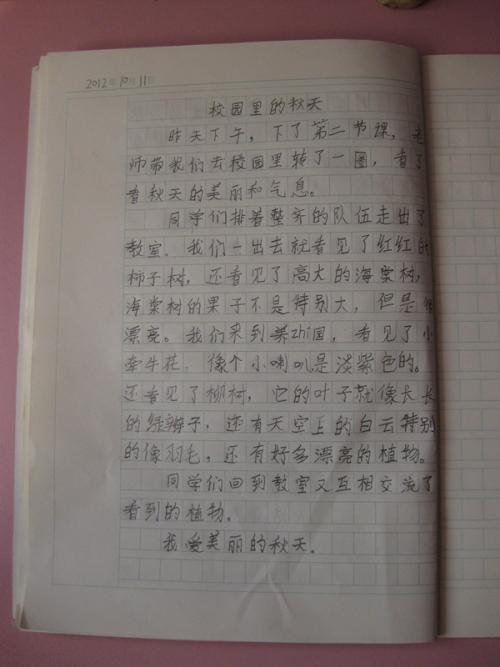 2012年10月11日
校园里的秋天
昨天下午，下了第二节课，老
师带我们去校园里转了一圈，看了
看秋天的美丽和气息。
同学们排着整齐的队伍走出了
教室，我们一出去就看见了红红的
柿子树，还看见了高大的海棠树，
海棠树的果子不是特别大，但是
漂亮。我们来到养zhi园，看见了小
牵牛花，像个小喇叭是淡紫色的。
还看见了柳树，它的叶子就像长长
的绿辫子，还有天空上的白云特别
的像羽毛，还有好多漂亮的植物。
同学们回到教室又互相交流了
看到的植物。
我爱美丽的秋天。